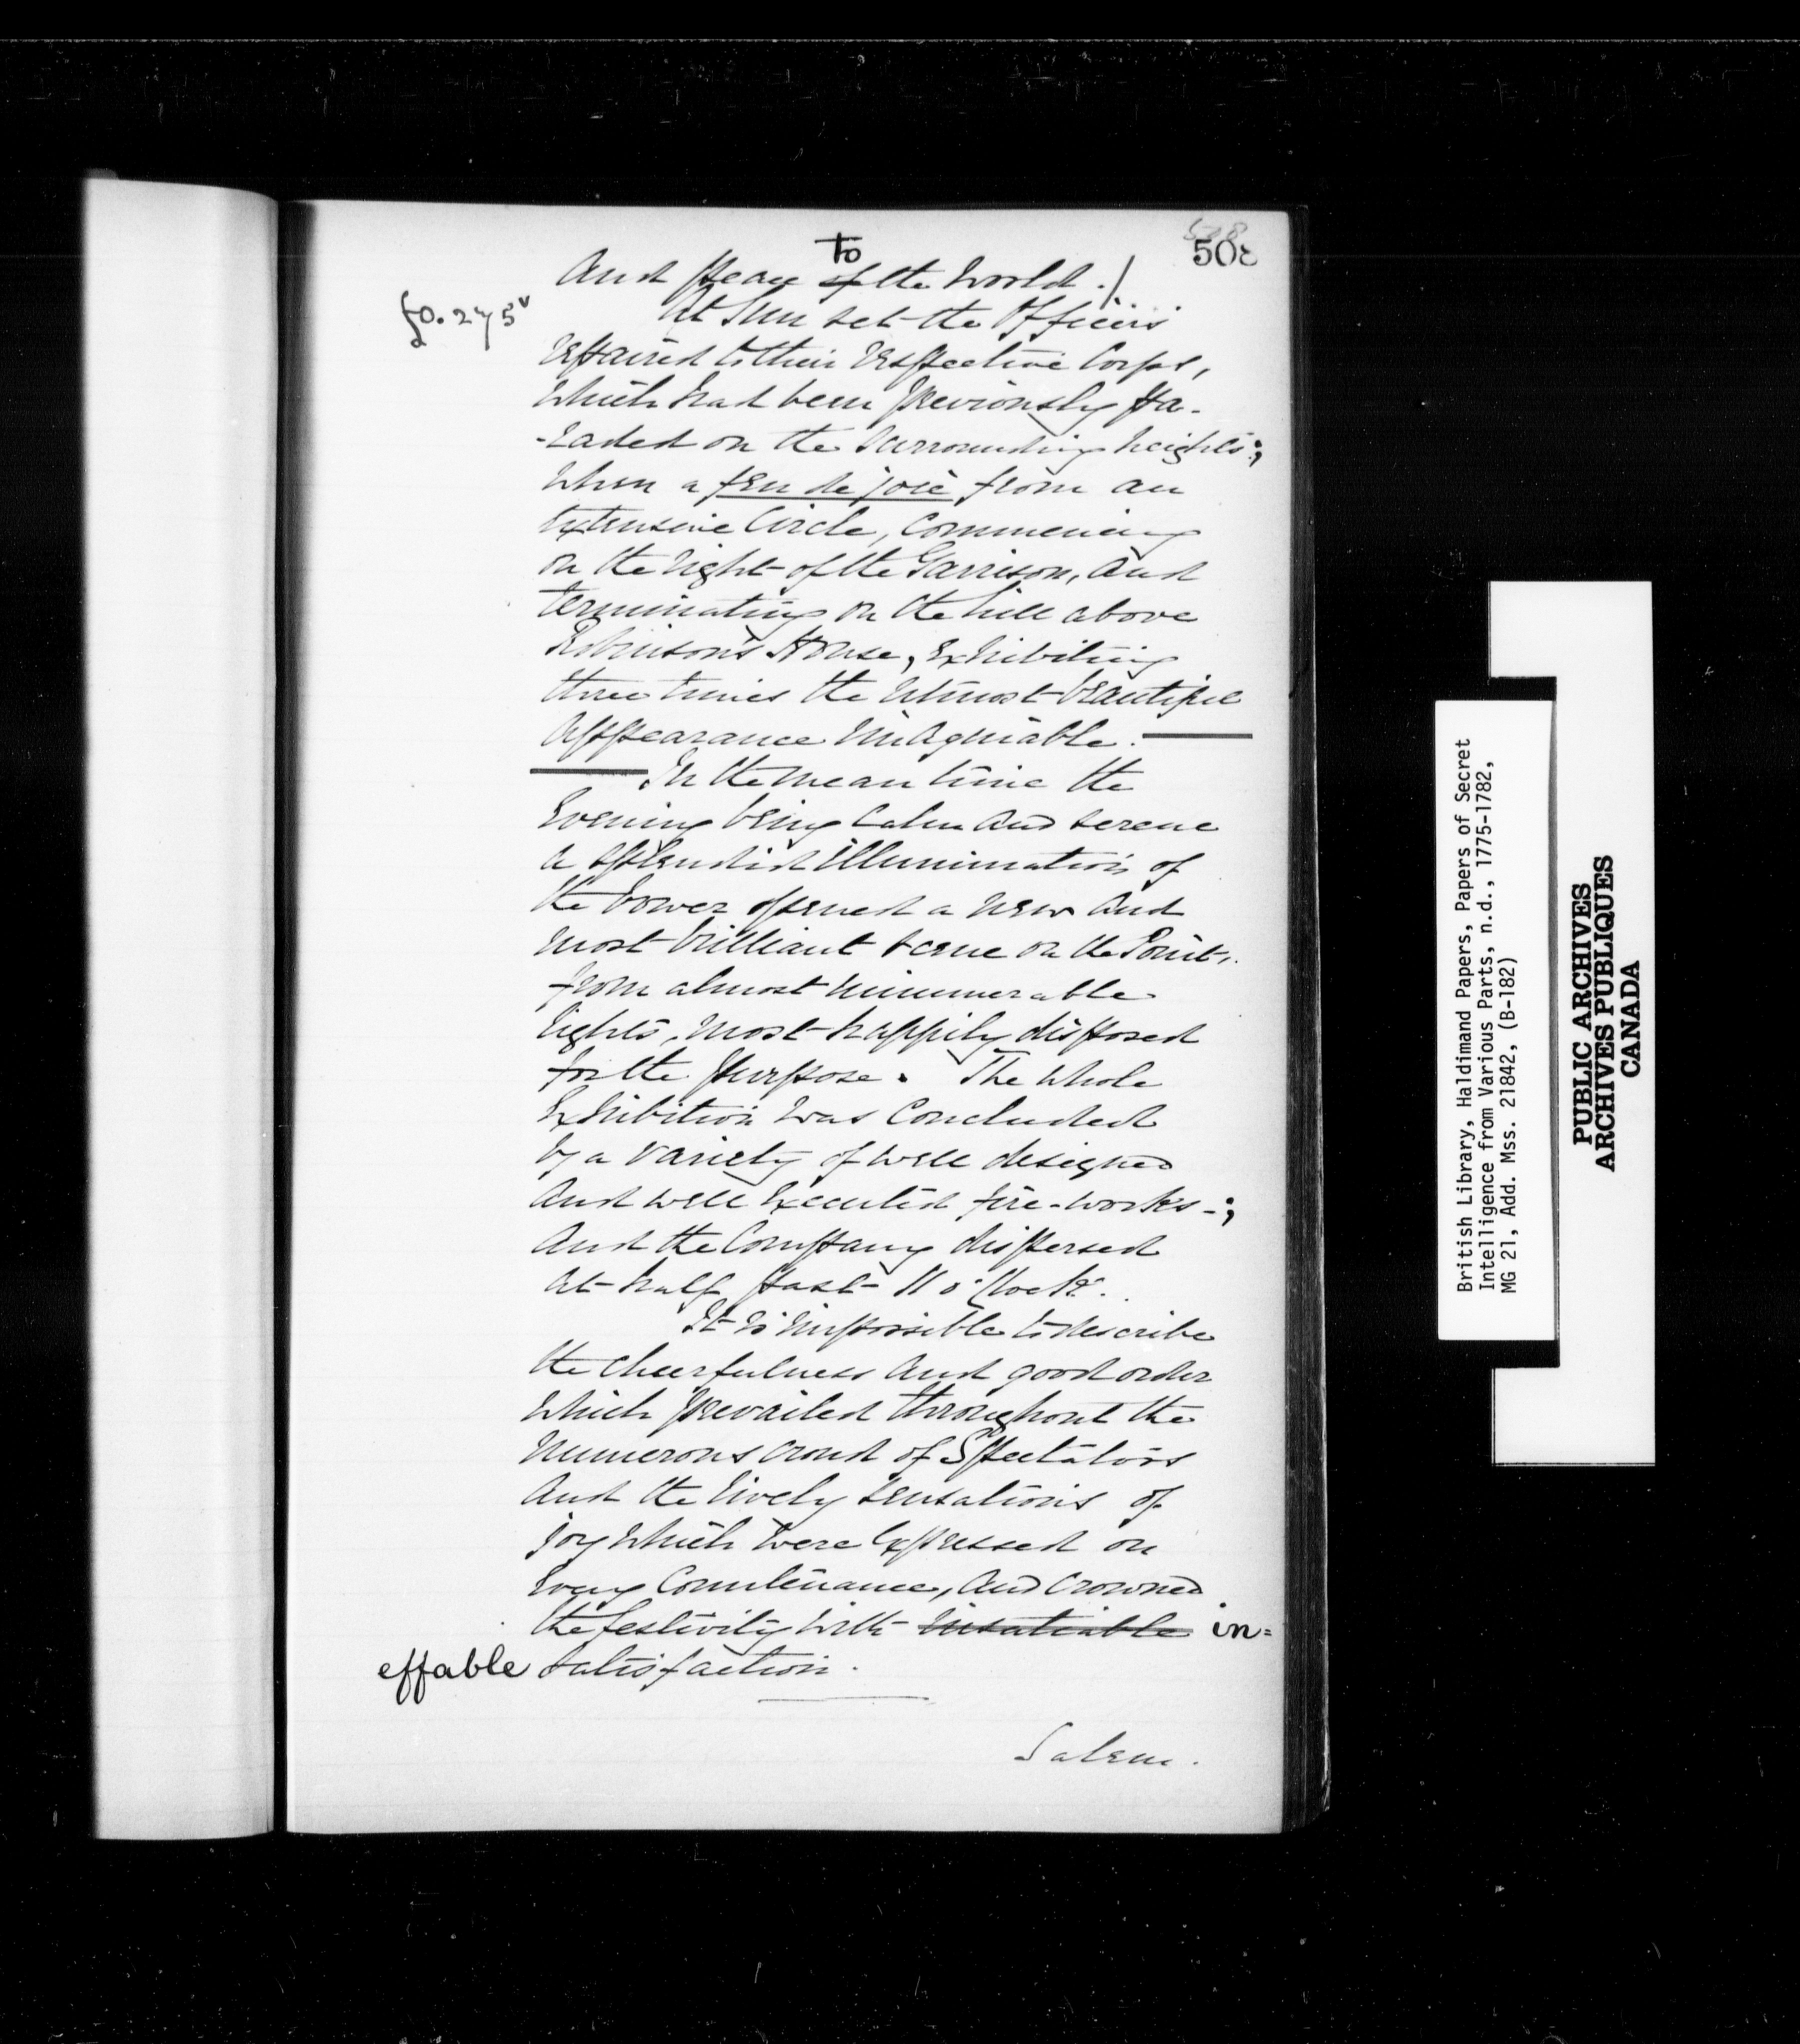 508
508
to
and peace of the World./
fo. 275v
At Sun set the Officers
repaired to their respective Corps,
which had been previously pa-
-raded on the surrounding heights;
when a feu de joie from an
extensive Circle, commencing
on the right of the Garrison, and
terminating on the hill above
Robinson's House, exhibiting
three times the utmost beautiful
appearance imaginable. —
— In the mean time the
Evening being calm and serene
a splendid illumination of
the bower opened a new and
most brilliant scene on the Point,
from almost innumerable
lights, most happily disposed
for the purpose. The whole
Exhibition was concluded
by a variety of well designed
and well executed fire-works-;
and the Company dispersed
at half past 11 o'Clock.
It is impossible to describe
the cheerfulness and good order
which prevailed throughout the
numerous croud of Spectators
and the lively sensations of
joy which were expressed on
every Countenance, and crowned
the festivity with insatiable in=
effable satisfaction.
Salem.
British Library, Haldimand Papers, Papers of Secret
Intelligence from Various Parts, n.d., 1775-1782,
MG 21, Add. Mss. 21842, (B-182)
PUBLIC ARCHIVES
ARCHIVES PUBLIQUES
CANADA